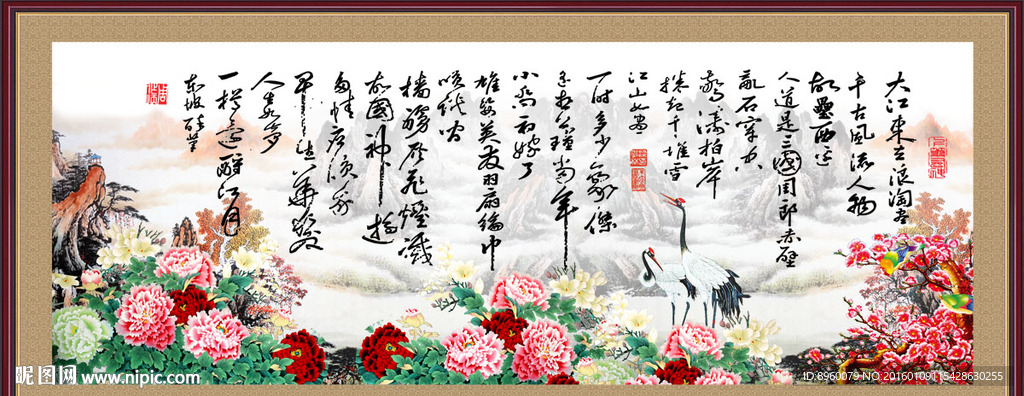 大江東去浪淘尽
千古風流人物
故壘西边
人道是三國周郎赤壁
亂石穿空
驚涛拍岸
捲起千堆雪
江山如畫
一时多少豪傑
遥想公瑾当年
小喬初嫁了
雄姿英发羽扇綸巾
談笑间
樯櫓灰飛煙滅
故國神遊
多情应笑我
早生華髮
人生如夢
一樽還酹江月
东坡醉笔
昵图网 www.nipic.com
ID:8960079 NO:20160109115428630255